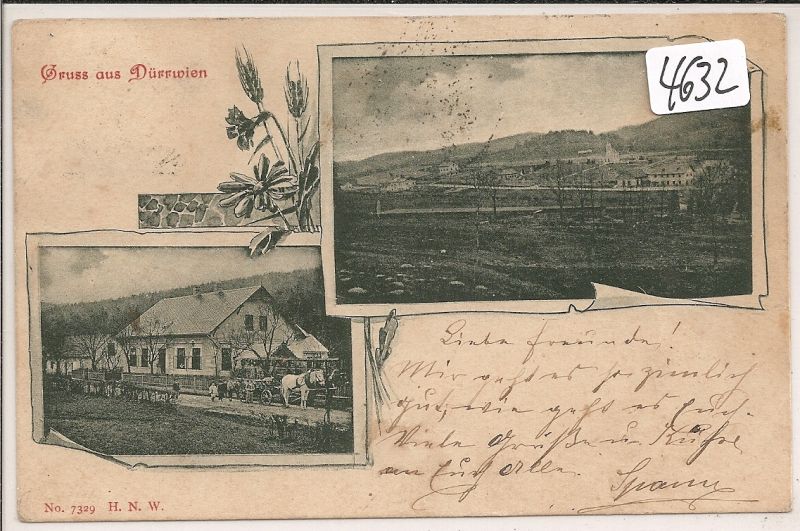 Gruss aus Dürrwien
4632
Liebe Freunde!
Mir geht es so ziemlich
gut, wie geht es Euch.
Viele Grüße u. Küsse
an Euch Alle.
No. 7329 H. N. W.